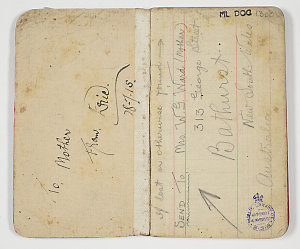 To Mother
From Eric.
28-7-15.
ML DOC
If lost or otherwise found
SEND To Mrs W. G. Ward (Mother)
313 George Street
Bathurst.
New South Wales
Australia